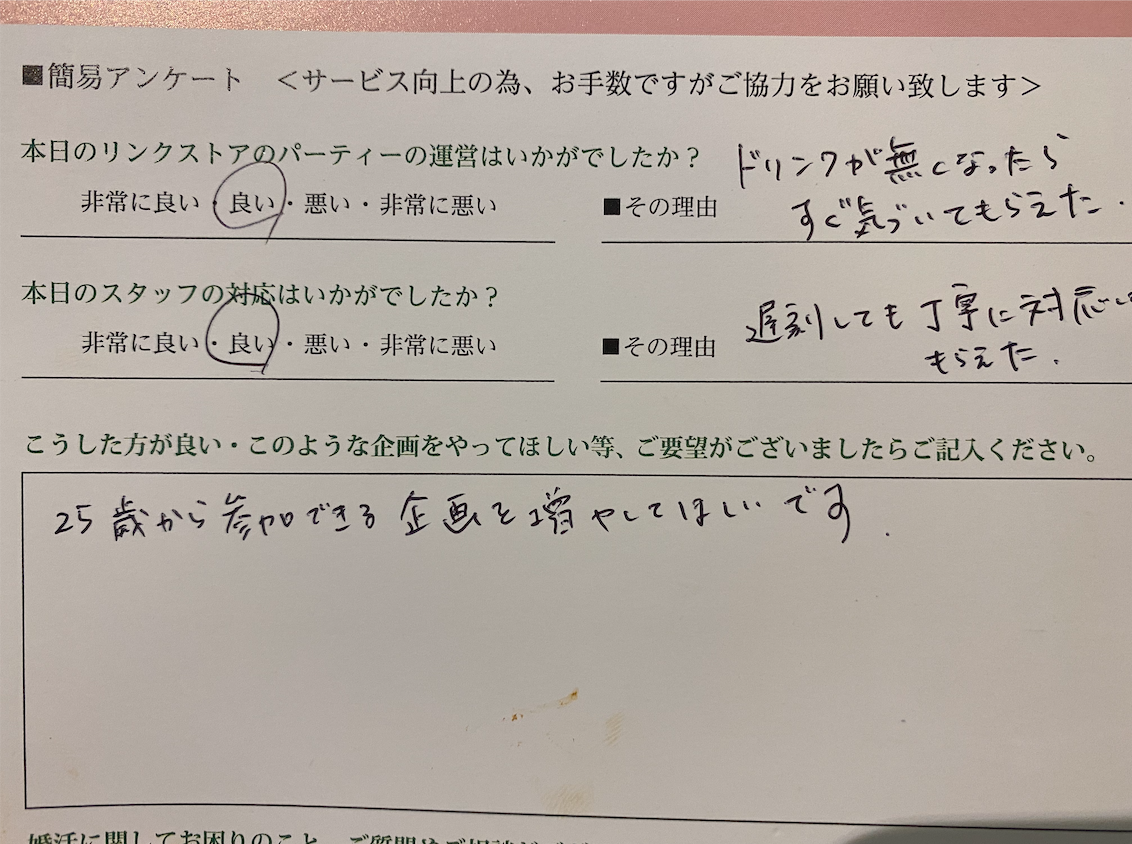 ■簡易アンケート　＜サービス向上の為、お手数ですがご協力をお願い致します＞
本日のリンクストアのパーティーの運営はいかがでしたか？
非常に良い・良い・悪い・非常に悪い
■その理由
ドリンクが無くなったら
すぐ気づいてもらえた.
本日のスタッフの対応はいかがでしたか？
非常に良い・良い・悪い・非常に悪い
■その理由
遅刻しても丁寧に対応し
もらえた.
こうした方が良い・このような企画をやってほしい等、ご要望がございましたらご記入ください。
25歳から参加できる企画を増やしてほしいです.
婚活に関してお困りのこと、ご質問やご相談が